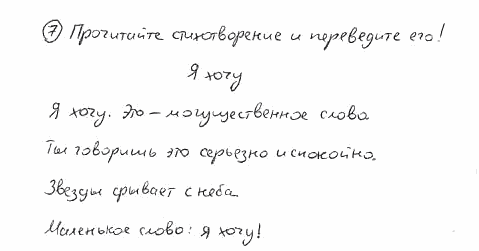 ⑦ Прочитайте стихотворение и переведите его!
Я хочу
Я хочу. Это – могущественное слово
Ты говоришь это серьезно и спокойно.
Звезды срывает с неба
Маленькое слово: я хочу!